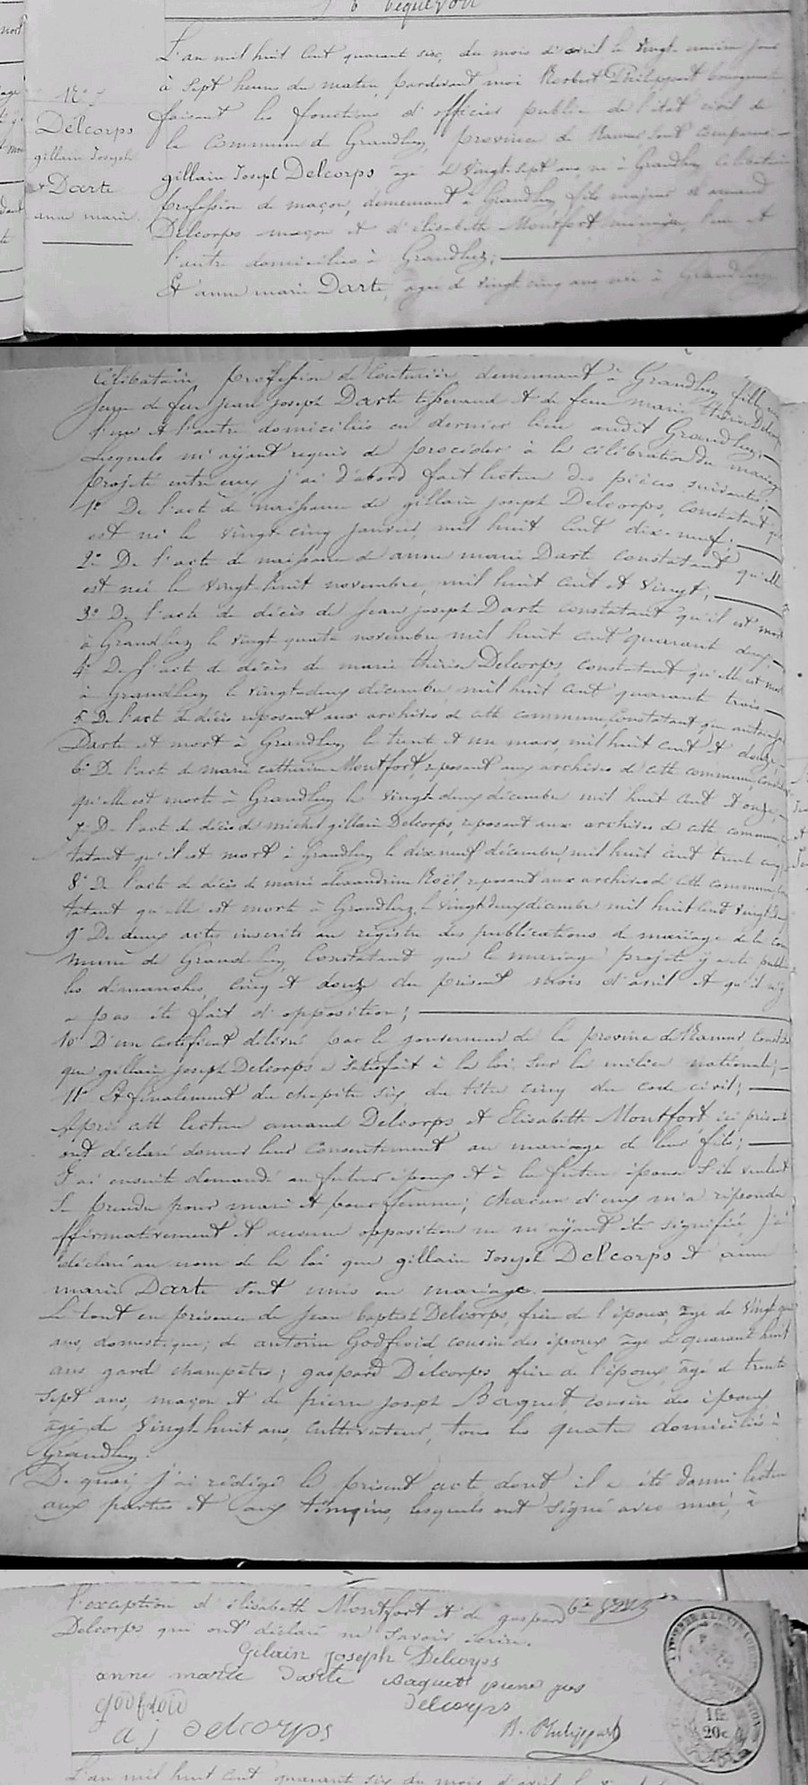 L'an mil huit cent quarante six, du mois d'avril le vingt unième jour
à sept heures du matin, pardevant moi Norbert Philippart bourgmestre
faisant les fonctions d'officier public de l'état civil de
la commune de Grandlez, province de Namur sont comparus —
N° 7
Delcorps
gillain Joseph
& Darte
anne marie.
gillain Joseph Delcorps agé de vingt sept ans, né à Grandlez célibataire
profession de maçon, demeurant à Grandlez fils majeur d'amand
Delcorps maçon et d'élisabeth Montfort ménagère, l'un et
l'autre domiciliés à Grandlez; —
Et anne marie Darte, agée de vingt cinq ans née à Grandlez
célibataire profession de couturière, demeurant à Grandlez fille
de feu jean joseph Darte tisserand et de feue marie thérèse Delcorps
l'un et l'autre domiciliés en dernier lieu audit Grandlez; —
Lesquels m'ayant requis de procéder à la célébration du mariage
projeté entre eux j'ai d'abord fait lecture des pièces suivantes; —
1° De l'acte de naissance de gillain joseph Delcorps, constatant qu'il
est né le vingt cinq janvier, mil huit cent dix-neuf. —
2° De l'acte de naissance de anne marie Darte constatant qu'elle
est née le vingt huit novembre, mil huit cent et vingt; —
3° De l'acte de décès de Jean joseph Darte constatant qu'il est mort
à Grandlez le vingt quatre novembre mil huit cent quarante deux —
4° De l'acte de décès de marie thérèse Delcorps, constatant qu'elle est morte
à Grandlez le vingt-deux décembre, mil huit cent quarante trois —
5° De l'acte de décès reposant aux archives de cette commune, constatant que
Darte est mort à Grandlez le trente et un mars, mil huit cent et douze
6° De l'acte de marie catherine Montfort, reposant aux archives de cette commune,
qu'elle est morte à Grandlez le vingt deux décembre mil huit cent et onze,
7° De l'acte de décès de michel gillain Delcorps, reposant aux archives de cette commune,
tatant qu'il est mort à Grandlez le dix neuf décembre, mil huit cent trente cinq
8° De l'acte de décès de marie alexandrine Noël reposant aux archives de cette commune
tatant qu'elle est morte à Grandlez, le vingt deux décembre mil huit cent
9° De deux actes inscrits au registre des publications de mariage de la com
mune de Grandlez constatant que le mariage projeté y a été publié
les dimanches, cinq et douze du présent mois d'avril et qu'il n'y
a pas été fait d'opposition; —
10° D'un certificat délivré par le gouverneur de la province de Namur,
que gillain joseph Delcorps a satisfait à la loi sur la milice nationale; —
11° Et finalement du chapitre six, du titre cinq du code civil; —
Après cette lecture amand Delcorps et Elisabeth Montfort, ici présents
ont déclaré donner leur consentement au mariage de leur fils; —
J'ai ensuite demandé au futur époux et à la future épouse s'ils veulent
se prendre pour mari et pour femme; chacun d'eux m'a répondu
affirmativement et aucune opposition ne m'ayant été signifiée j'ai
déclaré au nom de la loi que gillain Joseph Delcorps et anne
marie Darte sont unis en mariage. —
Le tout en présence de jean baptiste Delcorps, frère de l'époux, âgé de vingt
ans, domestique; de antoine Godfroid cousin des époux âgé de quarante huit
ans, garde champêtre; gaspard Delcorps, frère de l'époux, âgé de trente
sept ans, maçon et de pierre joseph Baquet cousin des époux
âgé de vingt huit ans, cultivateur, tous les quatre domiciliés à
Grandlez.
De quoi j'ai rédigé le présent acte dont il a été donné lecture
aux parties et aux témoins, lesquels ont signé avec moi, à
l'exception d'élisabeth Montfort et de gaspard
Delcorps qui ont déclaré ne savoir écrire.
Gilain joseph Delcorps
anne marie darte Baquet pierre jos
godfroid Delcorps
a j delcorps N. Philippart
20c
L'an mil huit cent quarante six du mois d'avril le